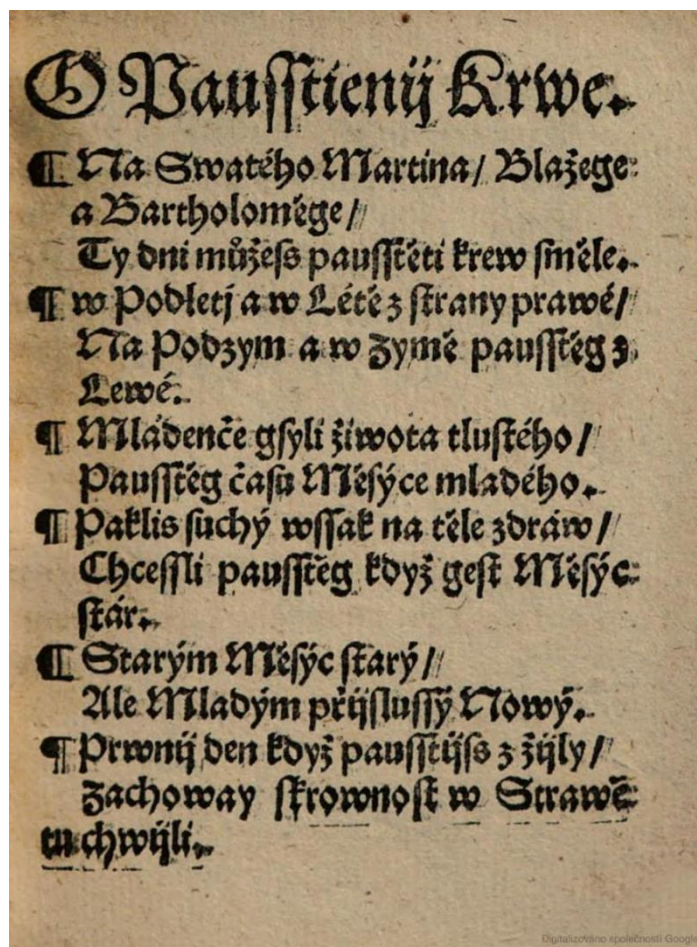 O Pausstienij Krwe.
¶ Na Swatého Martina/ Blažege
a Bartholoměge/
Ty dni můžess pausstěti krew směle.
¶ w Podletj a w Létě z strany prawé/
Na Podzym a w Zymě pausstěg z
Lewé.
¶ Mládenče gsyli žiwota tlustého/
Pausstěg času Měsýce mladého.
¶ Paklis suchý wssak na těle zdráw/
Chcessli pausstěg když gest Měsýc
stár.
¶ Starým Měsýc starý/
Ale Mladým přijslussý Nowý.
¶ Prwnij den když pausstijss z žijly/
Zachoway skrownost w Strawě
tu chwijli.
Digitalizováno společností Google